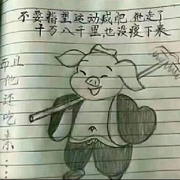 不要指望运动减肥，他走了
十万八千里，也没瘦下来
而且他还吃素……